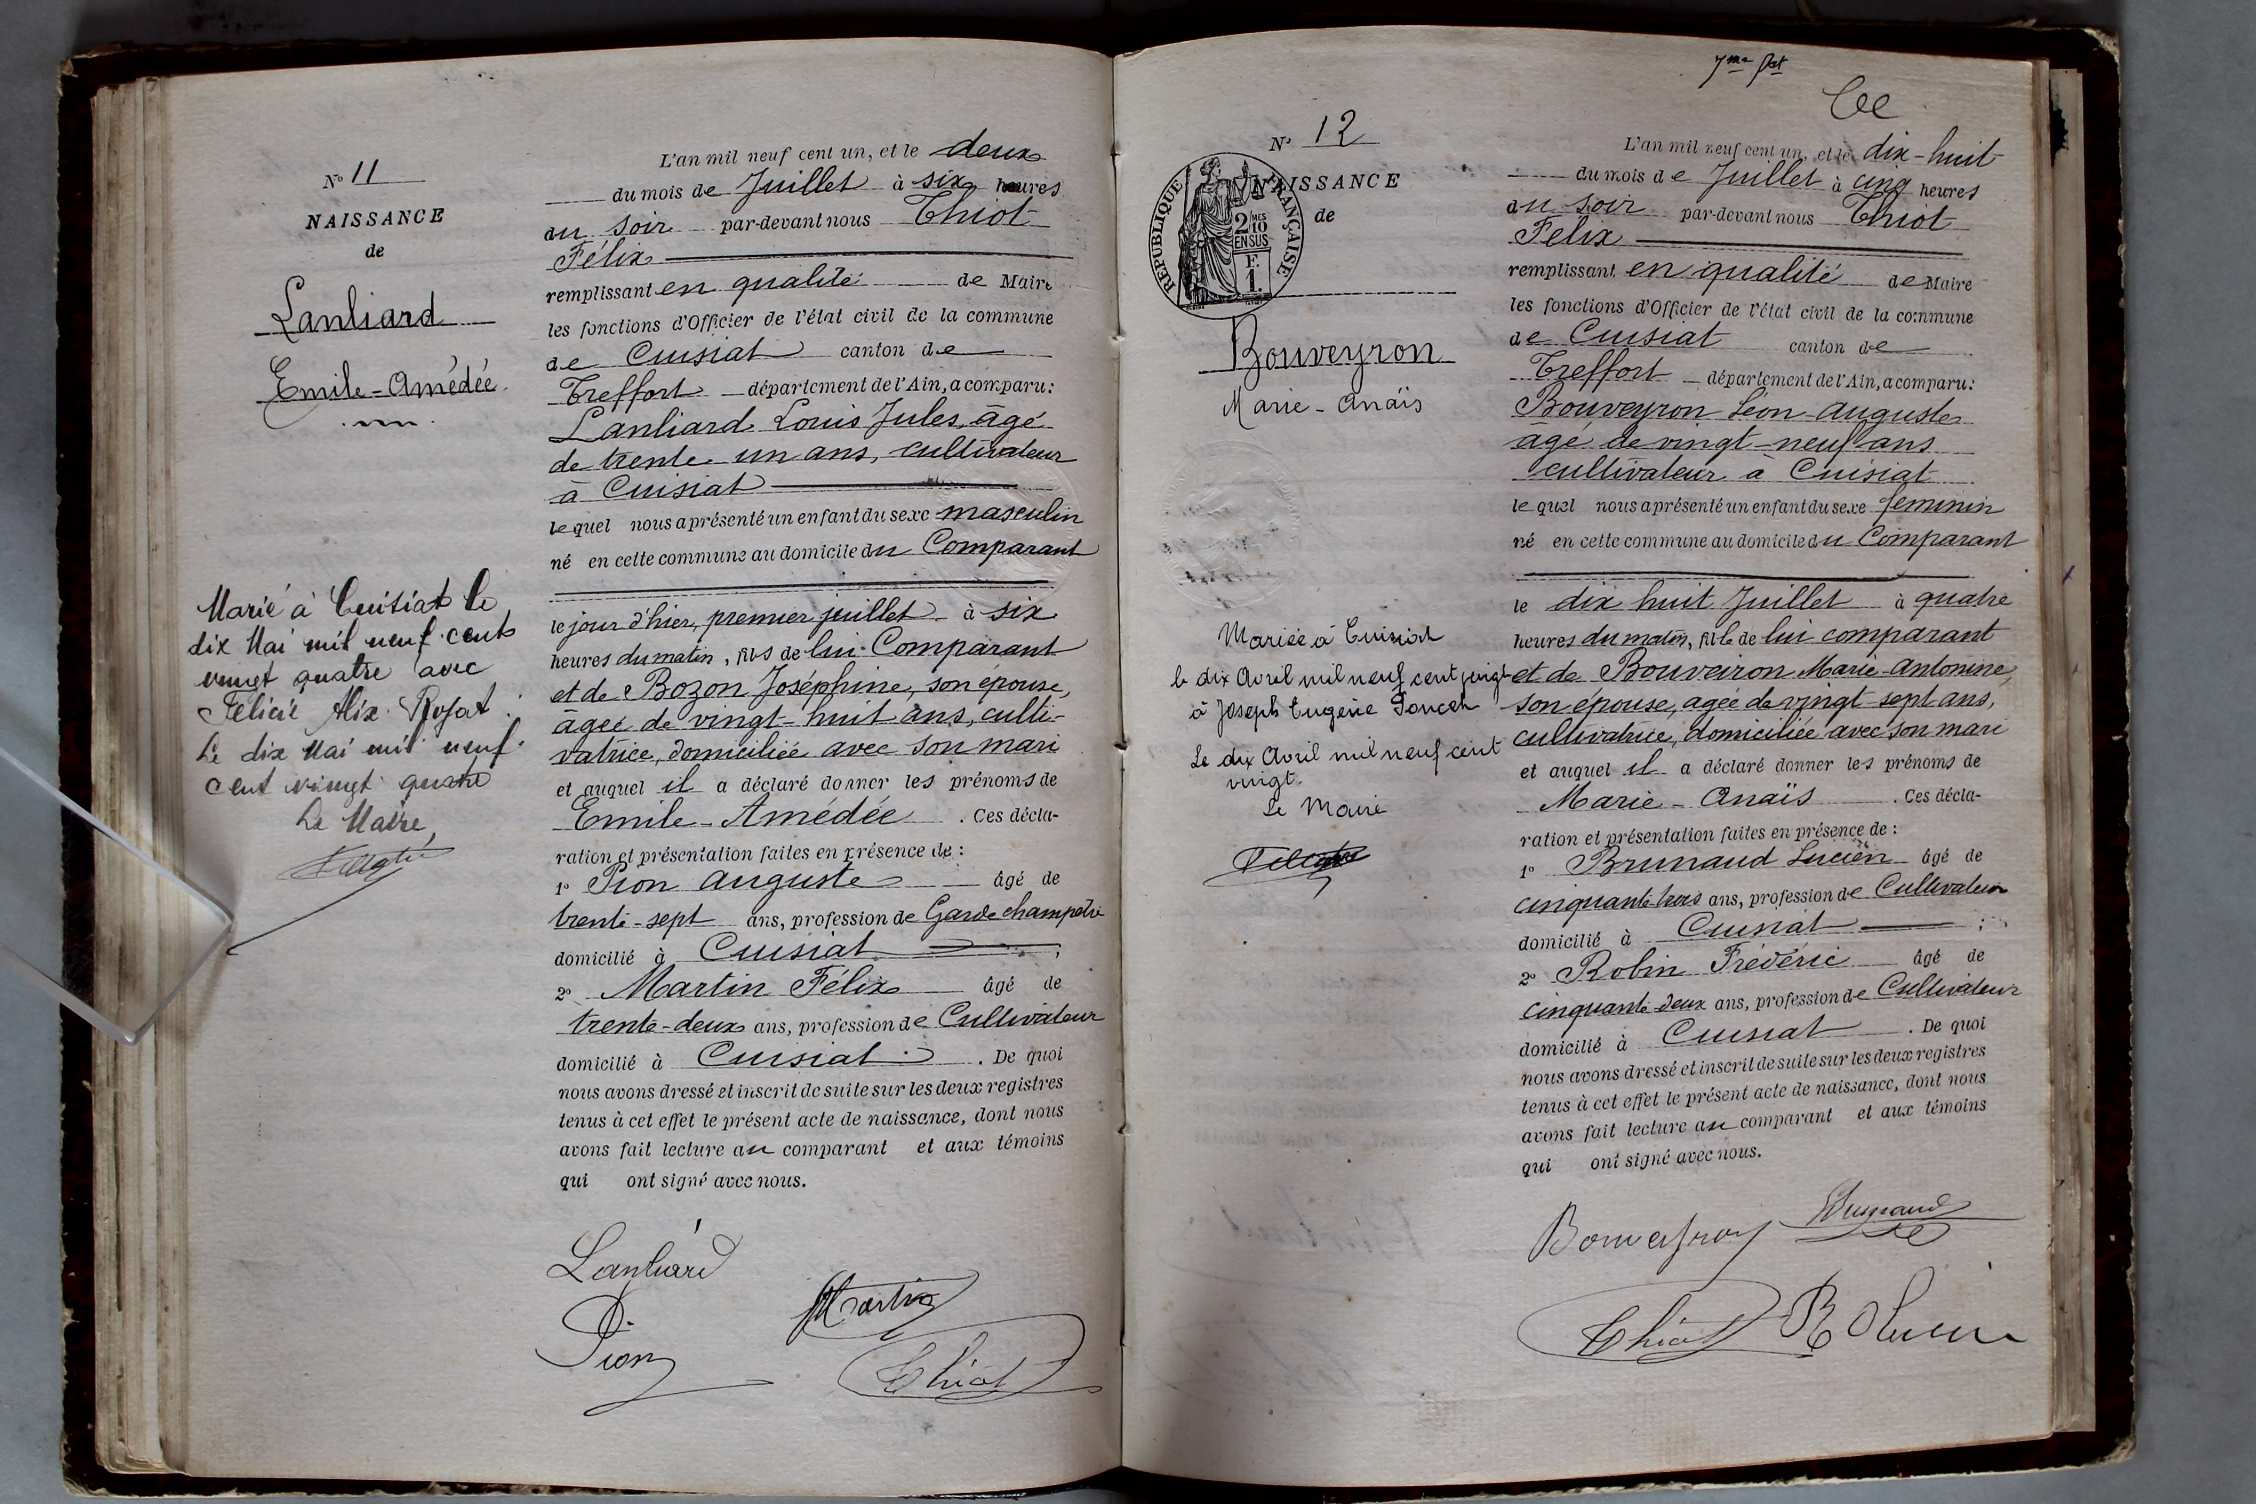 N° 11
NAISSANCE
de
Lanliard
Emile-Amédée
Marié à Cuisiat le
dix Mai mil neuf cent
vingt quatre avec
Félicie Alix Rojat.
Le dix Mai mil neuf
cent vingt quatre
Le Maire,
L'an mil neuf cent un, et le deux
du mois de Juillet à six heures
du soir par-devant nous Thiot
Félix
remplissant en qualité de Maire
les fonctions d'Officier de l'état civil de la commune
de Cuisiat canton de
Treffort département de l'Ain, a comparu:
Lanliard Louis Jules, âgé
de trente-un ans, cultivateur
à Cuisiat
lequel nous a présenté un enfant du sexe masculin
né en cette commune au domicile du Comparant
le jour d'hier, premier juillet à six
heures du matin, fils de lui Comparant
et de Bozon Joséphine, son épouse,
âgée de vingt-huit ans, culti-
vatrice, domiciliée avec son mari
et auquel il a déclaré donner les prénoms de
Emile-Amédée. Ces décla-
ration et présentation faites en présence de :
1° Pion Auguste âgé de
trente-sept ans, profession de Garde champetre
domicilié à Cuisiat ;
2° Martin Félix âgé de
trente-deux ans, profession de Cultivateur
domicilié à Cuisiat. De quoi
nous avons dressé et inscrit de suite sur les deux registres
tenus à cet effet le présent acte de naissance, dont nous
avons fait lecture au comparant et aux témoins
qui ont signé avec nous.
Lanliard
Martin
Pion
Thiot
7me
N° 12
RÉPUBLIQUE FRANÇAISE
2 MES
10
EN SUS
F.
1.
NAISSANCE
de
Bouveyron
Marie-Anaïs
Mariée à Cuisiat
le dix Avril mil neuf cent vingt
à Joseph Eugène
Le dix Avril mil neuf cent
vingt.
Le Maire
L'an mil neuf cent un, et le dix-huit
du mois de Juillet à cinq heures
du soir par-devant nous Thiot
Félix
remplissant en qualité de Maire
les fonctions d'Officier de l'état civil de la commune
de Cuisiat canton de
Treffort département de l'Ain, a comparu:
Bouveyron Léon-Auguste
âgé de vingt-neuf ans
cultivateur à Cuisiat
lequel nous a présenté un enfant du sexe feminin
né en cette commune au domicile du Comparant
le dix huit Juillet à quatre
heures du matin, fille de lui comparant
et de Bouveiron Marie-Antonine,
son épouse, agée de vingt-sept ans,
cultivatrice, domiciliée avec son mari
et auquel il a déclaré donner les prénoms de
Marie-Anaïs. Ces décla-
ration et présentation faites en présence de :
1° Brunaud Lucien âgé de
cinquante trois ans, profession de Cultivateur
domicilié à Cuisiat ;
2° Robin Frédéric âgé de
cinquante deux ans, profession de Cultivateur
domicilié à Cuisiat. De quoi
nous avons dressé et inscrit de suite sur les deux registres
tenus à cet effet le présent acte de naissance, dont nous
avons fait lecture au comparant et aux témoins
qui ont signé avec nous.
Bouveyron
Brunaud
Thiot
Robin